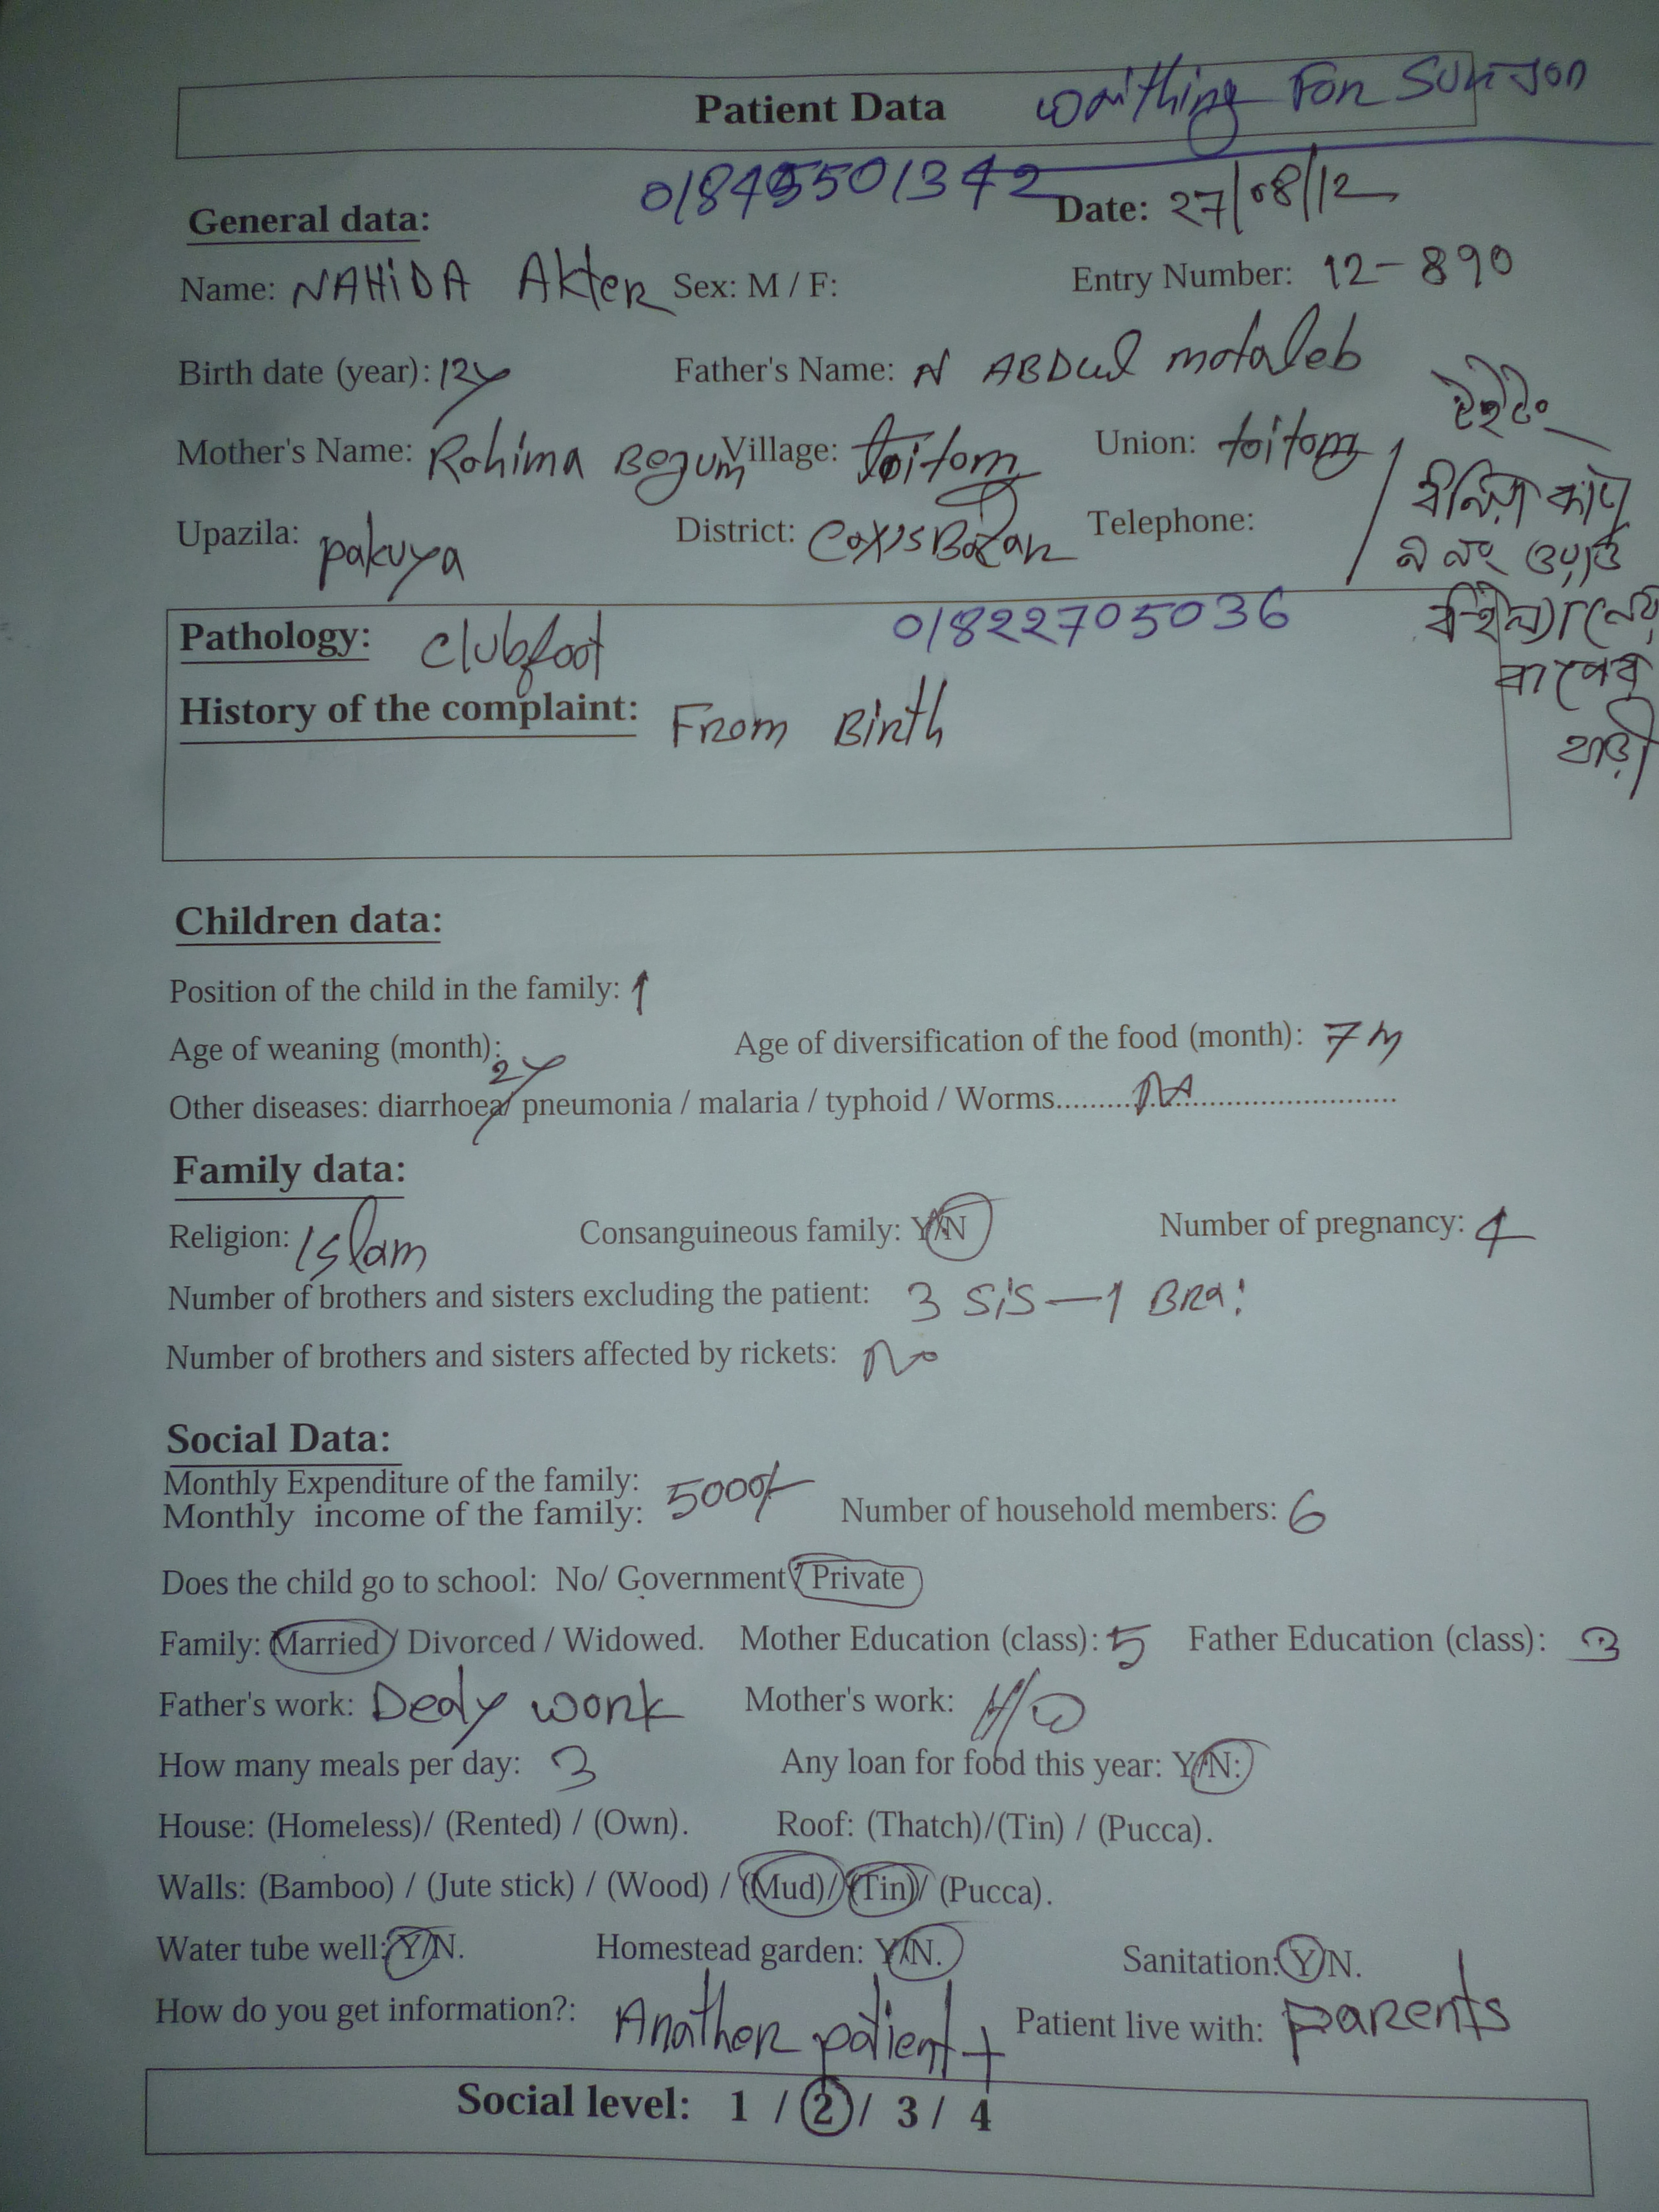 Patient Data waithing For Surjon
01845501342 Date: 27/08/12
General data:
Name: NAHiDA AkteR Sex: M / F: Entry Number: 12-890
Birth date (year): 12y Father's Name: N ABDul motaleb
Mother's Name: Rohima Begum Village: toitong Union: toitong
Upazila: pakuya District: Cox's Bazar Telephone:
টইটং
Pathology: clubfoot 01822705036
History of the complaint: From Birth
বাড়ী
Children data:
Position of the child in the family: 1
Age of weaning (month): 2y Age of diversification of the food (month): 7m
Other diseases: diarrhoea/ pneumonia / malaria / typhoid / Worms............NA............
Family data:
Religion: Islam Consanguineous family: Y/N Number of pregnancy: 4
Number of brothers and sisters excluding the patient: 3 Sis—1 BRa:
Number of brothers and sisters affected by rickets: No
Social Data:
Monthly Expenditure of the family:
Monthly income of the family: 5000/- Number of household members: 6
Does the child go to school: No/ Government/ Private
Family: Married / Divorced / Widowed. Mother Education (class): 5 Father Education (class): 3
Father's work: Dealy work Mother's work: H/W
How many meals per day: 3 Any loan for food this year: Y/N:
House: (Homeless)/ (Rented) / (Own). Roof: (Thatch)/(Tin) / (Pucca).
Walls: (Bamboo) / (Jute stick) / (Wood) / (Mud)/ (Tin)/ (Pucca).
Water tube well: Y/N. Homestead garden: Y/N. Sanitation: Y/N.
How do you get information?: Anather patient Patient live with: parents
Social level: 1 / 2 / 3 / 4